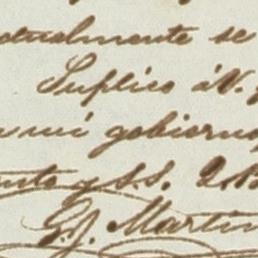 actualmente se
Suplico á V.
mi gobierno
y S. S. Q. B.
G. J. Martin